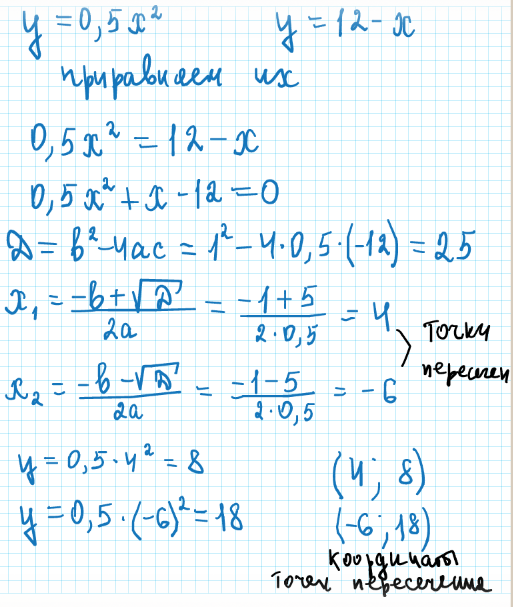 y = 0,5x² y = 12 - x
приравняем их
0,5x² = 12 - x
0,5x² + x - 12 = 0
D = b² - 4ac = 1² - 4·0,5·(-12) = 25
x₁ = (-b + √D)/2a = (-1 + 5)/(2·0,5) = 4
x₂ = (-b - √D)/2a = (-1 - 5)/(2·0,5) = -6
точки
пересечен
y = 0,5·4² = 8 (4; 8)
y = 0,5·(-6)² = 18 (-6; 18)
координаты
точек пересечения